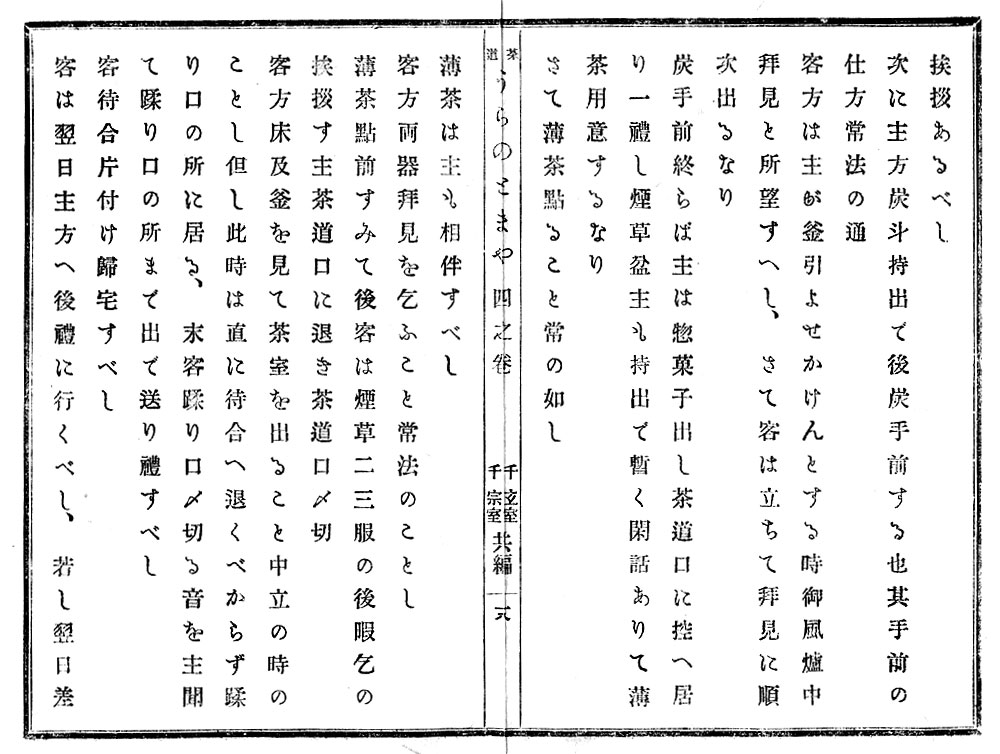 挨拶あるべし
次に主方炭斗持出で後炭手前する也其手前の
仕方常法の通
客方は主が釜引よせかけんとする時御風爐中
拜見と所望すへし、さて客は立ちて拜見に順
次出るなり
炭手前終らば主は惣菓子出し茶道口に控へ居
り一禮し煙草盆主も持出で暫く閑話ありて薄
茶用意するなり
さて薄茶點ること常の如し
茶道
うらのとまや 四之卷
千玄室
千宗室
共編
薄茶は主も相伴すべし
客方両器拜見を乞ふこと常法のことし
薄茶點前すみて後客は煙草二三服の後暇乞の
挨拶す主茶道口に退き茶道口〆切
客方床及釜を見て茶室を出ること中立の時の
ことし但し此時は直に待合へ退くべからず蹂
り口の所に居る、末客蹂り口〆切る音を主聞
て蹂り口の所まで出で送り禮すべし
客待合片付け歸宅すべし
客は翌日主方へ後禮に行くべし、若し翌日差